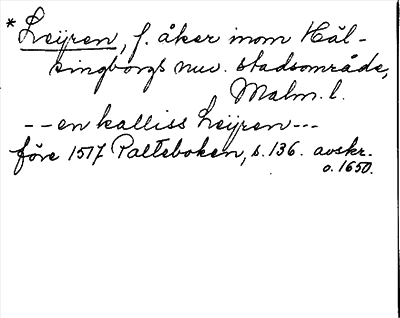 * Leijren, f. åker inom Häl-
singborgs nuv. stadsområde,
Malm. l.
-- en kalliss Leijren ---
före 1517 Palteboken, s. 136. avskr.
o. 1650.